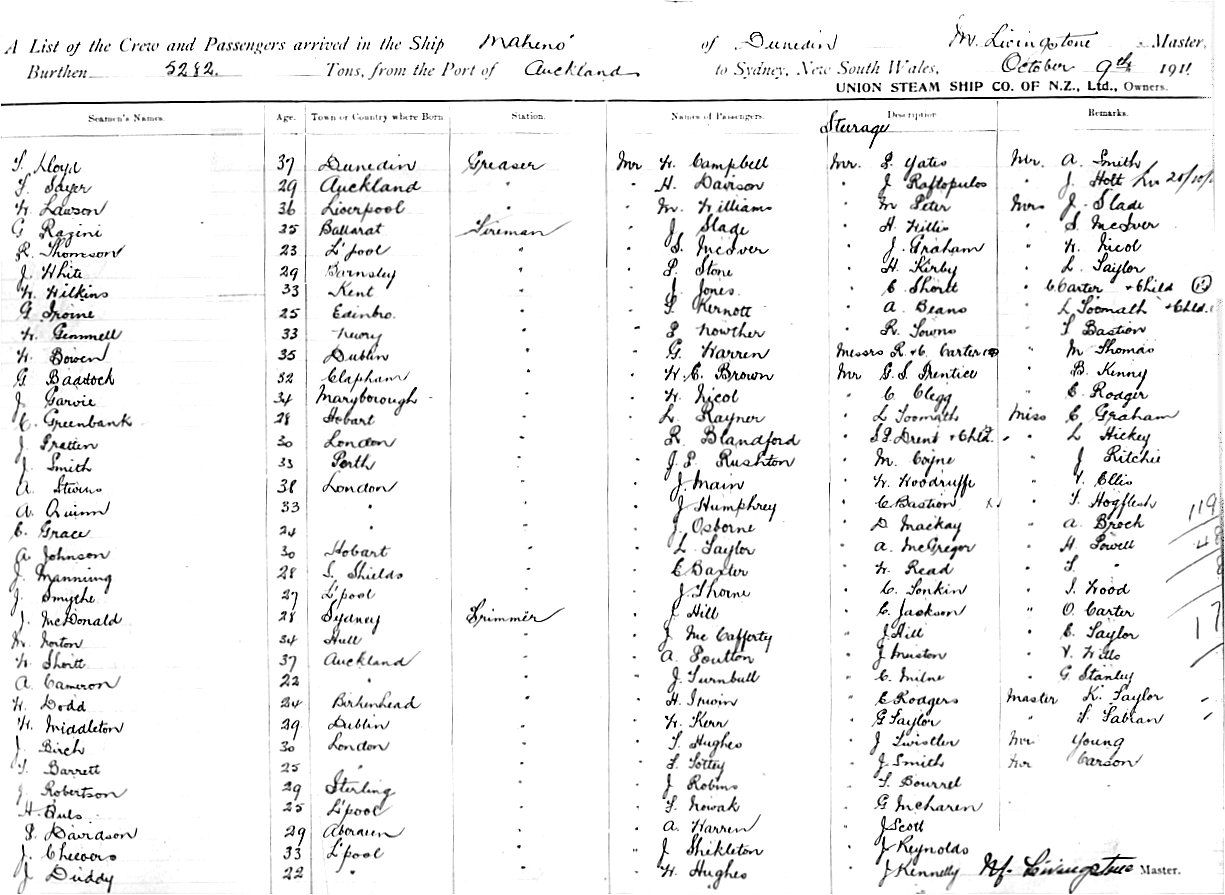 A List of the Crew and Passengers arrived in the Ship Maheno of Dunedin M. Livingstone Master,
Burthen 5282. Tons, from the Port of Auckland to Sydney, New South Wales, October 9th 1911
UNION STEAM SHIP CO. OF N.Z., Ltd., Owners.
Seamen's Names. Age. Town or Country where Born Station. Names of Passengers. Description Remarks.
Sturage
Lloyd 37 Dunedin Greaser Mr W. Campbell Mr. P. Yates Mr. A. Smith
Sayer 29 Auckland " " H. Davison " J Raftopulos " J. Holt
W. Lawson 36 Liverpool " " M. Williams " M Peter Mrs J. Slade
G Razini 25 Ballarat Fireman " J. Slade " H. Willis " S. McIver
R. Thomson 23 L'pool " " S. McIver " J. Graham " W. Nicol
J. White 29 Barnsley " " P. Stone " H. Kirby " L. Taylor
W. Wilkins 33 Kent " " J. Jones " C Shortt " C Carter + Child
G Irvine 25 Edinbro. " " Kernott " A. Beans " L Toomath + Chld.
W. Gemmell 33 Newry " " P Nowther " R. Towns " T Bastion
W. Bowen 35 Dublin " " G. Warren Messrs R. + C. Carter " M Thomas
G Baddock 32 Clapham " " W. C. Brown Mr G. S. Prentice " B. Kenny
J. Garvie 34 Maryborough " " W. Nicol " C Clegg " E. Rodger
C. Greenbank 28 Hobart " " L. Rayner " L Toomath Miss C. Graham
J. Gratten 30 London " " R. Blandford " Brent + Chld. " L Hickey
J. Smith 33 Perth " " J. P. Rushton " M. Coyne " J Ritchie
A. Stevens 38 London " " J. Main " W. Woodruffe " V. Ellis
A. Quinn 33 " " " J Humphrey " C Bastion " T. Hogflesh
C. Grace 24 " " " J. Osborne " D. Mackay " A. Brock
A Johnson 30 Hobart " " L. Taylor " A. McGregor " H. Powell
J. Manning 28 S. Shields " " C Baxter " W. Read " "
J. Smythe 27 L'pool " " J Thorne " C. Tonkin " Wood
J. McDonald 28 Sydney Trimmer " J Hill " C. Jackson " O. Carter
W. Norton 34 Hull " " J. McCafferty " J. Hill " E. Taylor
W. Shortt 37 Auckland " " A. Poulton " J Muston " V. Wills
A. Cameron 22 " " " J. Turnbull " C. Milne " G Stanley
W. Dodd 24 Birkenhead " " H. Irwin " E Rodgers Master K. Taylor
W. Middleton 29 Dublin " " W. Kerr " G Taylor " Fabian
J. Birch 30 London " " T. Hughes " J Twistler Mr Young
T. Barrett 25 " " " Tottey " J. Smith Mr Carson
J. Robertson 29 Sterling " " J Robins " Bourrel
H. 25 L'pool " " Nowak " G McLaren
Davidson 29 Aberdeen " " A. Warren " J Scott
J. Cheevers 33 L'pool " " J Shekleton " J Reynolds
J Duddy 22 " " " W. Hughes " J Kennelly M. Livingstone Master.
119
48
17